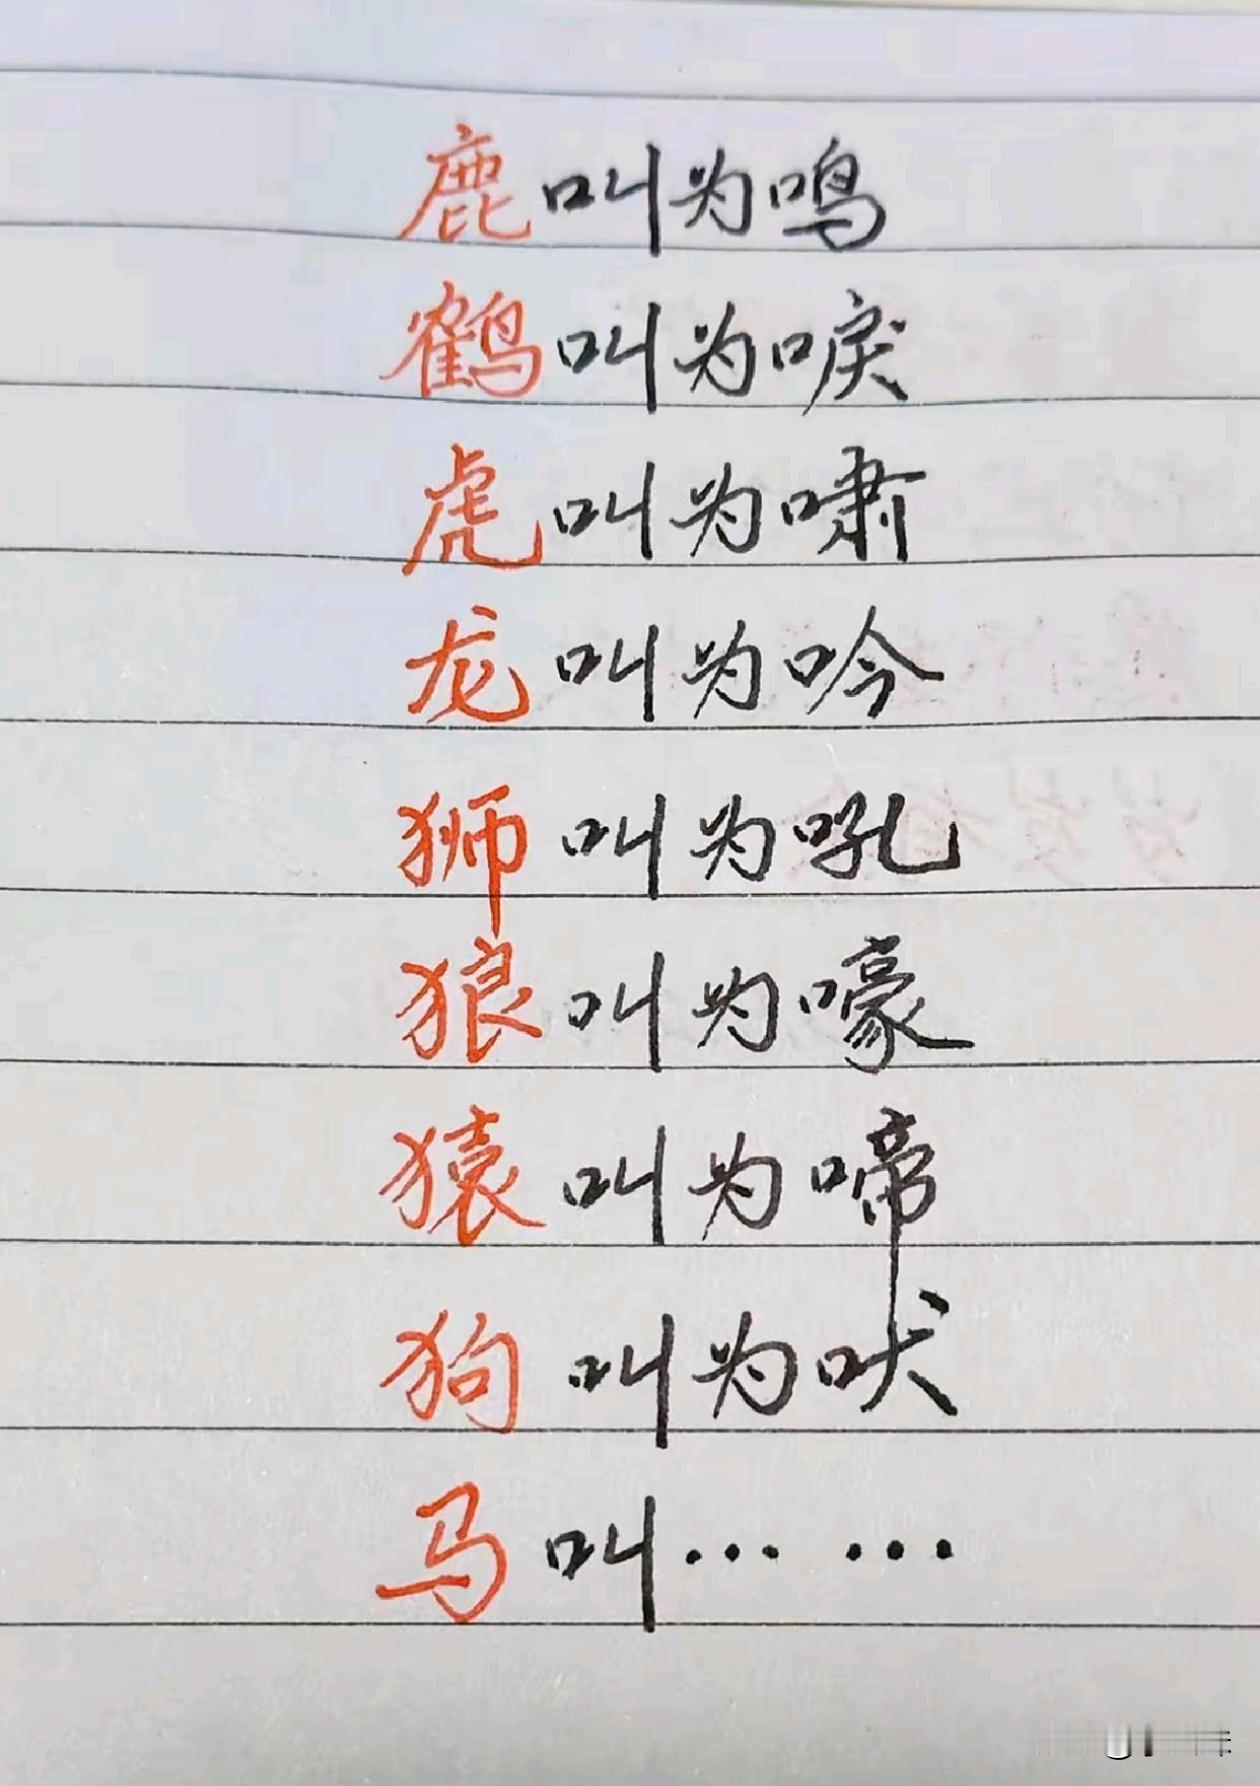 鹿叫为鸣
鹤叫为唳
虎叫为啸
龙叫为吟
狮叫为吼
狼叫为嚎
猿叫为啼
狗叫为吠
马叫……